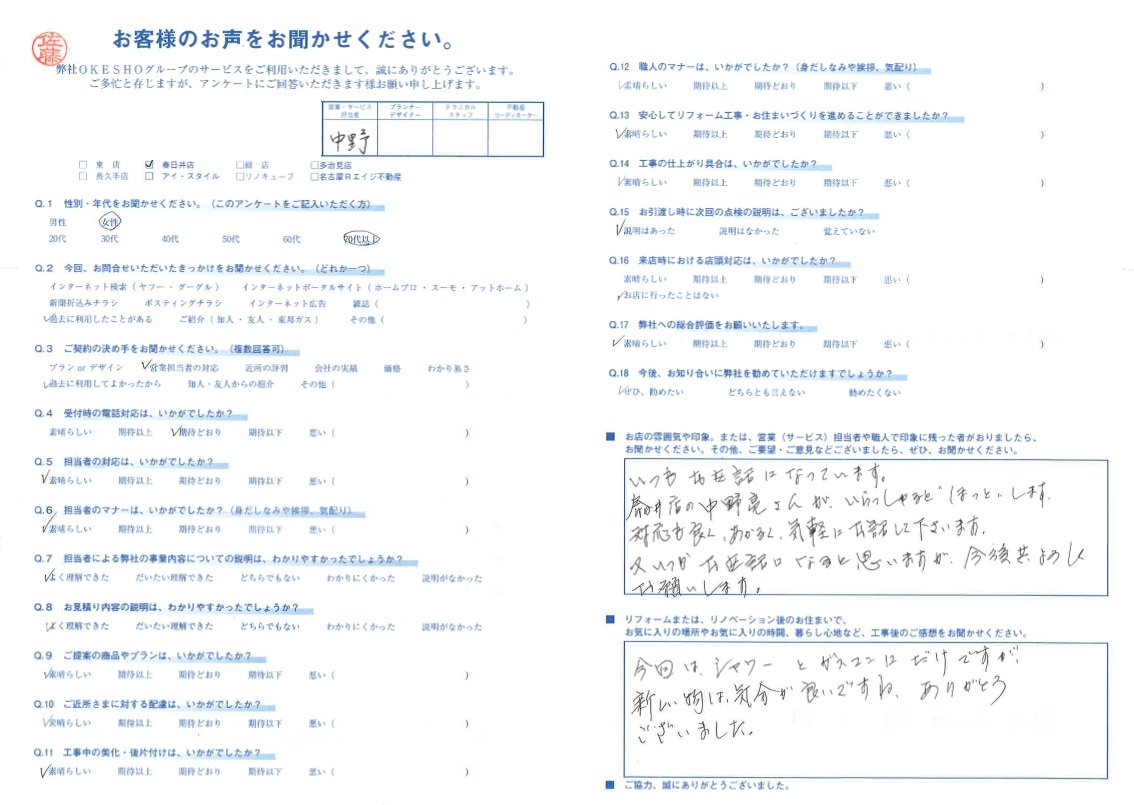 佐藤
お客様のお声をお聞かせください。
弊社OKESHOグループのサービスをご利用いただきまして、誠にありがとうございます。
ご多忙と存じますが、アンケートにご回答いただきます様お願い申し上げます。
営業・サービス担当者 プランナーデザイナー テクニカルスタッフ 不動産コーディネーター
中野
□ 東 店 ☑ 春日井店 □緑 店 □多治見店
□ 長久手店 □ アイ・スタイル □リノキューブ □名古屋Rエイジ不動産
Q.1 性別・年代をお聞かせください。（このアンケートをご記入いただく方）
男性 女性
20代 30代 40代 50代 60代 70代以上
Q.2 今回、お問合せいただいたきっかけをお聞かせください。（どれか一つ）
インターネット検索（ヤフー・グーグル） インターネットポータルサイト（ホームプロ・スーモ・アットホーム）
新聞折込みチラシ ポスティングチラシ インターネット広告 雑誌（ ）
✓過去に利用したことがある ご紹介（知人・友人・東邦ガス） その他（ ）
Q.3 ご契約の決め手をお聞かせください。（複数回答可）
プラン or デザイン ✓営業担当者の対応 近所の評判 会社の実績 価格 わかり易さ
✓過去に利用してよかったから 知人・友人からの紹介 その他（ ）
Q.4 受付時の電話対応は、いかがでしたか？
素晴らしい 期待以上 ✓期待どおり 期待以下 悪い（ ）
Q.5 担当者の対応は、いかがでしたか？
✓素晴らしい 期待以上 期待どおり 期待以下 悪い（ ）
Q.6 担当者のマナーは、いかがでしたか？（身だしなみや挨拶、気配り）
✓素晴らしい 期待以上 期待どおり 期待以下 悪い（ ）
Q.7 担当者による弊社の事業内容についての説明は、わかりやすかったでしょうか？
✓よく理解できた だいたい理解できた どちらでもない わかりにくかった 説明がなかった
Q.8 お見積り内容の説明は、わかりやすかったでしょうか？
✓よく理解できた だいたい理解できた どちらでもない わかりにくかった 説明がなかった
Q.9 ご提案の商品やプランは、いかがでしたか？
✓素晴らしい 期待以上 期待どおり 期待以下 悪い（ ）
Q.10 ご近所さまに対する配慮は、いかがでしたか？
✓素晴らしい 期待以上 期待どおり 期待以下 悪い（ ）
Q.11 工事中の美化・後片付けは、いかがでしたか？
✓素晴らしい 期待以上 期待どおり 期待以下 悪い（ ）
Q.12 職人のマナーは、いかがでしたか？（身だしなみや挨拶、気配り）
✓素晴らしい 期待以上 期待どおり 期待以下 悪い（ ）
Q.13 安心してリフォーム工事・お住まいづくりを進めることができましたか？
✓素晴らしい 期待以上 期待どおり 期待以下 悪い（ ）
Q.14 工事の仕上がり具合は、いかがでしたか？
✓素晴らしい 期待以上 期待どおり 期待以下 悪い（ ）
Q.15 お引渡し時に次回の点検の説明は、ございましたか？
✓説明はあった 説明はなかった 覚えていない
Q.16 来店時における店頭対応は、いかがでしたか？
素晴らしい 期待以上 期待どおり 期待以下 悪い（ ）
✓お店に行ったことはない
Q.17 弊社への総合評価をお願いいたします。
✓素晴らしい 期待以上 期待どおり 期待以下 悪い（ ）
Q.18 今後、お知り合いに弊社を勧めていただけますでしょうか？
✓ぜひ、勧めたい どちらとも言えない 勧めたくない
■ お店の雰囲気や印象。または、営業（サービス）担当者や職人で印象に残った者がおりましたら、
お聞かせください。その他、ご要望・ご意見などございましたら、ぜひ、お聞かせください。
いつもお世話になっています。
春井店の中野亮さんが、いらっしゃるとほっとします。
対応も良く、あかるく、気軽にお話して下さいます。
又いつかお世話になると思いますが、今後共よろしく
お願いします。
■ リフォームまたは、リノベーション後のお住まいで、
お気に入りの場所やお気に入りの時間、暮らし心地など、工事後のご感想をお聞かせください。
今回は、シャワーとガスコンロだけですが、
新しい物は、気分が良いですね、ありがとう
ございました。
■ ご協力、誠にありがとうございました。